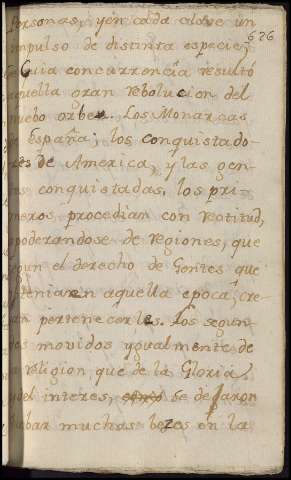 Personas, y en cada clase un
626
mpulso de distinta especie,
Cuia concurrencia resultó
quella gran rebolucion del
nuebo orbe. Los Monarcas
e españa; los conquistado-
res de America, y las gen-
s conquistadas. los pri-
meros procedian con rectitud,
poderandose de regiones, que
egun el derecho de Gentes que
tenian en aquella epoca, cre-
an pertenecerles. Los segun-
os movidos ygualmente de
a religion que de la Gloria
y el interes, se dejaron
labar muchas bezes en la